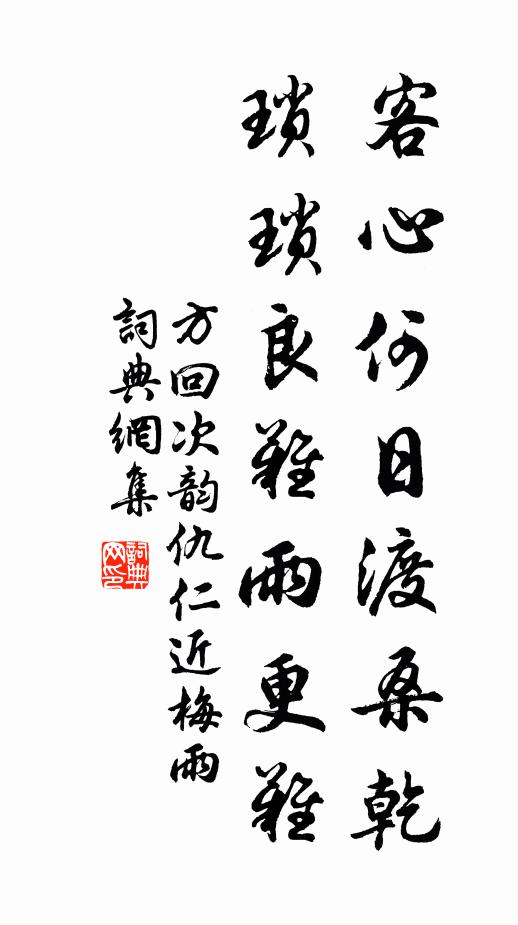 客心何日渡桑乾
瑣瑣良難雨更難
方回次韵仇仁近梅雨
詞典網集
詞典网印